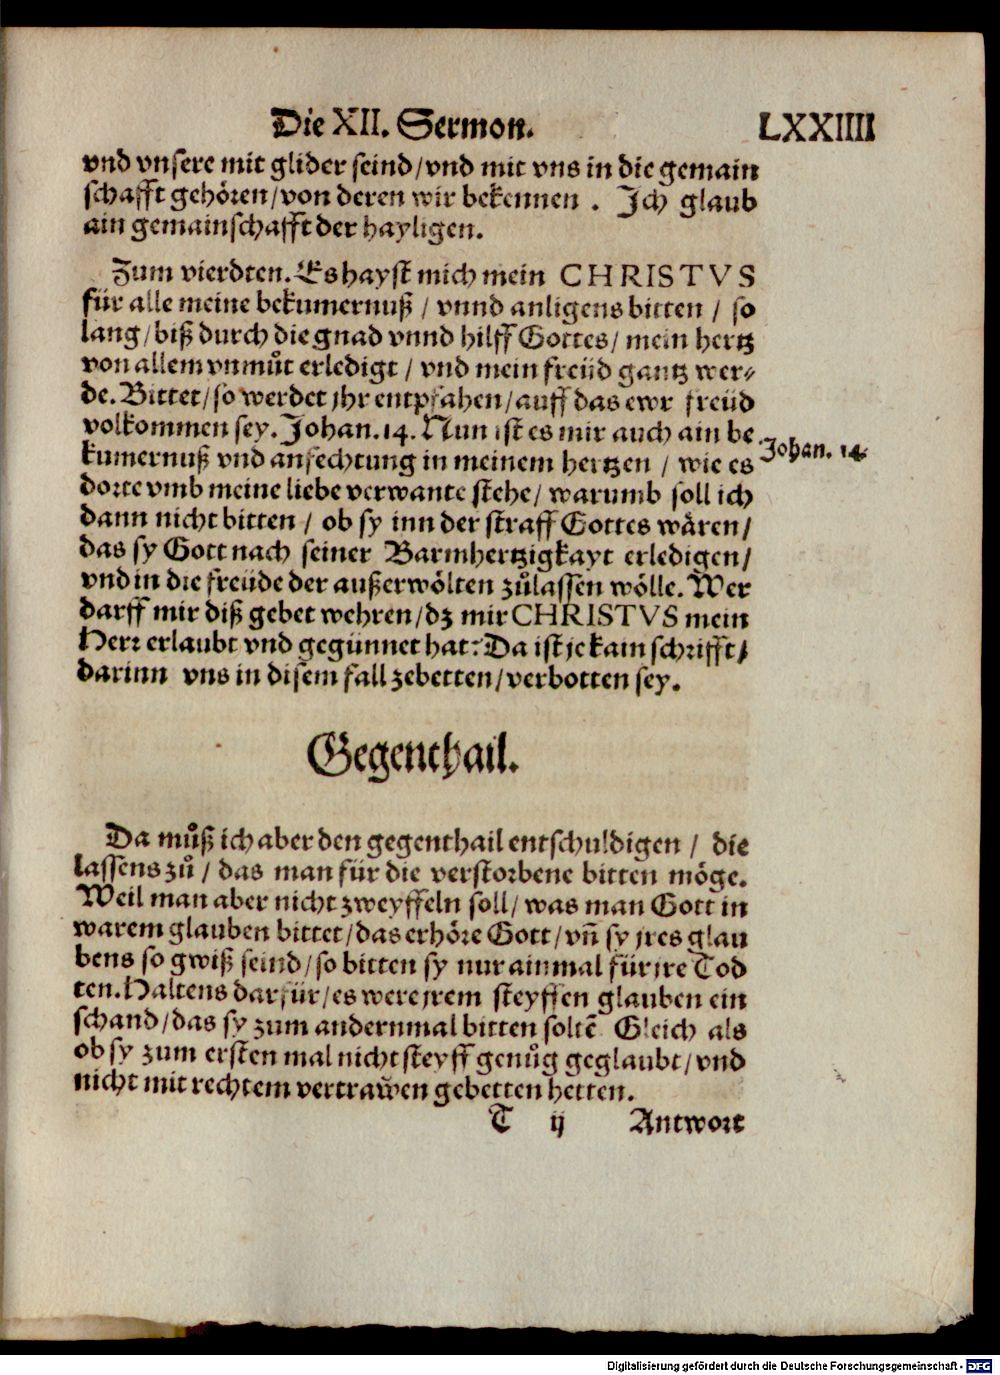 Die XII. Sermon. LXXIIII
vnd vnsere mit glider seind/vnd mit vns in die gemain
schafft gehören/von deren wir bekennen . Ich glaub
ain gemainschafft der hayligen.
Zum vierdten. Es hayst mich mein CHRISTVS
für alle meine bekumernuß / vnnd anligens bitten / so
lang/biß durch die gnad vnnd hilff Gottes/ mein hertz
von allem vnmůt erledigt / vnd mein freüd gantz wer⸗
de. Bittet/so werdet jhr entpfahen/auff das ewr freüd
volkommen sey. Johan. 14. Nun ist es mir auch ain be
Johan. 14.
kumernuß vnd anfechtung in meinem hertzen / wie es
dorte vmb meine liebe verwante stehe/ warumb soll ich
dann nicht bitten / ob sy inn der straff Gottes wären/
das sy Gott nach seiner Barmhertzigkayt erledigen/
vnd in die freüde der außerwölten zůlassen wölle. Wer
darff mir diß gebet wehren/dz mir CHRISTVS mein
Herr erlaubt vnd gegünnet hat? Da ist je kain schrifft/
darinn vns in disem fall zebetten/verbotten sey.
Gegenthail.
Da můß ich aber den gegenthail entschuldigen / die
lassens zů / das man für die verstorbene bitten möge.
Weil man aber nicht zweyffeln soll/ was man Gott in
warem glauben bittet/das erhöre Gott/vñ sy jres glau
bens so gwiß seind/so bitten sy nur ainmal für jre Tod
ten. Haltens darfür/es were jrem steyffen glauben ein
schand/das sy zum andernmal bitten soltẽ Gleich als
ob sy zum ersten mal nicht steyff genůg geglaubt/vnd
nicht mit rechtem vertrawen gebetten hetten.
T ij Antwort
Digitalisierung gefördert durch die Deutsche Forschungsgemeinschaft - DFG